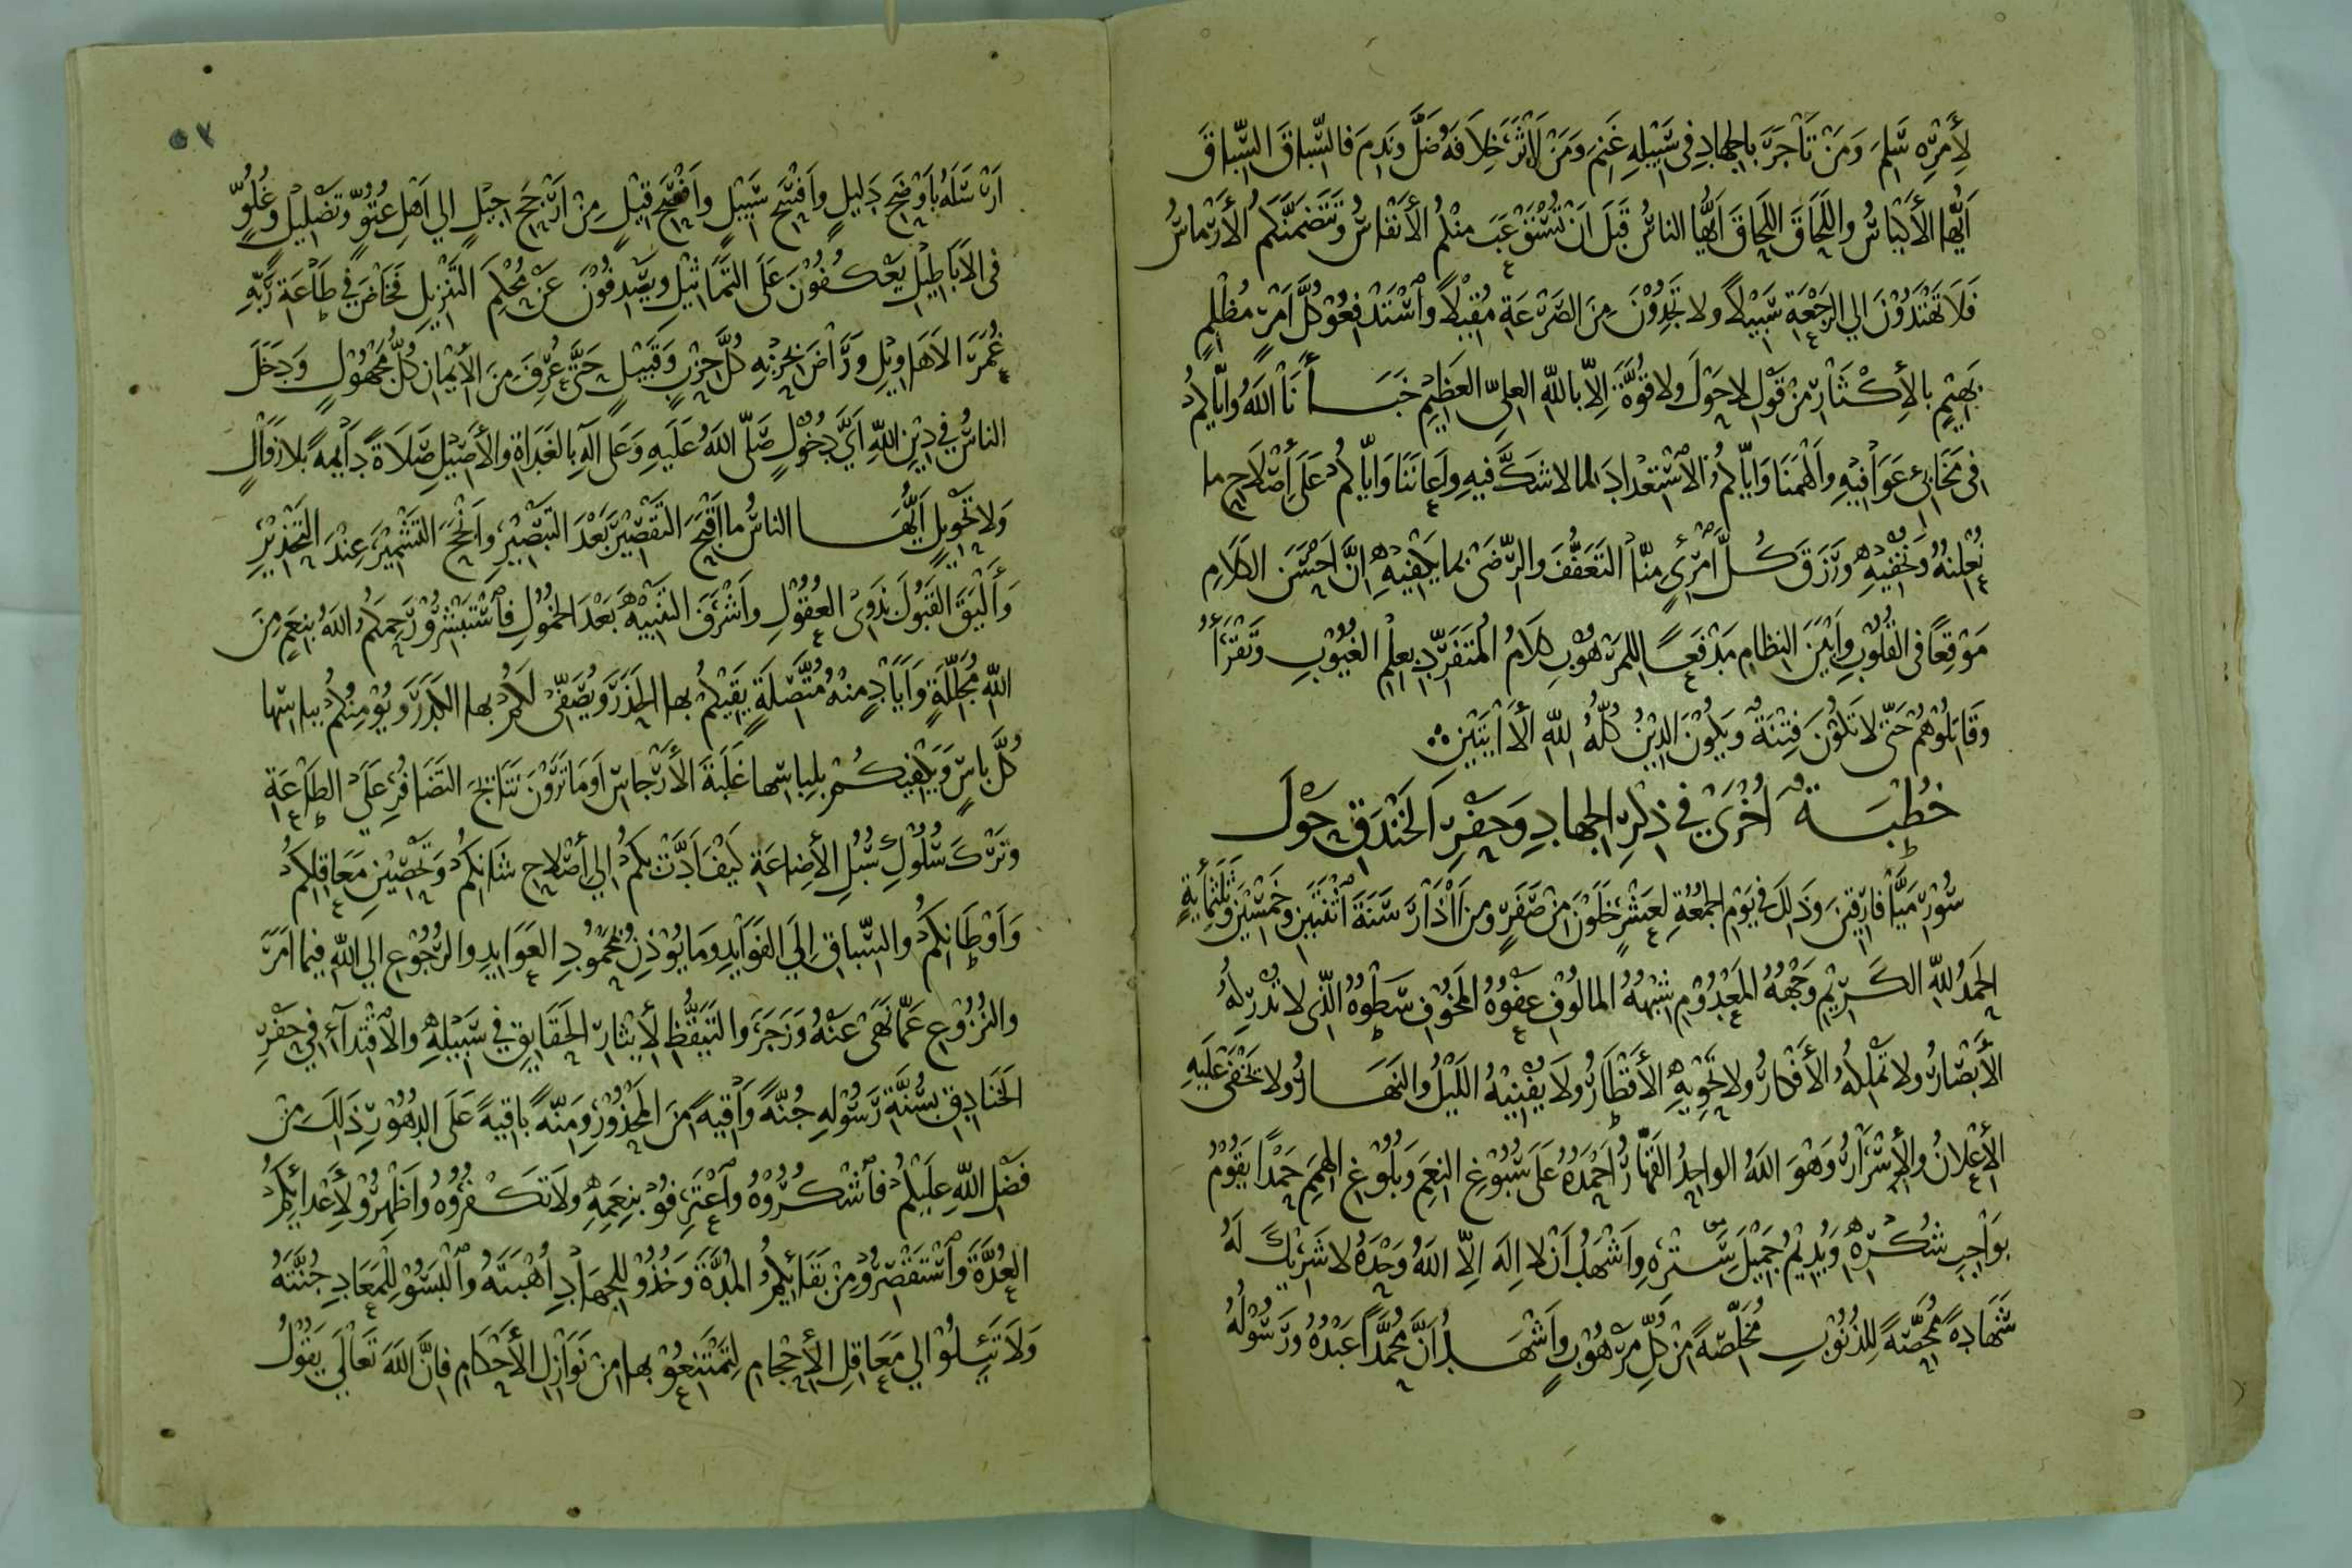 لِأَمْرِهِ سَلِمَ وَمَنْ تَأَجَرَّ بِالجِهَادِ فِي سَبِيْلِهِ غَنِمَ وَمَنْ لَاثَرَ خِلَافَهُ ضَلَّ وَنَدِمَ فالسِّبَاقَ السِّبَاقَ
اَيُّهَا الأَكْيَاسُ واللَّحَاقَ اللَّحَاقَ اَيُّهَا الناسُ قَبْلَ اَنْ تُسْتَوْعَبَ مِنْكُمُ الأَنْفَاسُ وَتَتَضَمَّنَكُمُ الأَرْمَاسُ
فَلَا تَهْتَدُوْنَ اِلي الرَجْعَةِ سَبِيْلاً ولا تَجِدُوْنَ مِنَ الصَرْعَةِ مُقِيْلاً وٱسْتَدْفِعُوْ كُلَّ اَمْرٍ مُظْلِمٍ
بَهِيْمٍ بِالأِكْثَارِ مِنْ قَوْلِ لاحَوْلَ ولاقُوَّةَ اِلّا بالله العليّ العَظِيْمِ خَبَأَنَا اللَهُ وَاِيَّاكُمْ
فِي مَخَابِئِ عَوَافِيْهِ وَأَلْهَمَنَا وَاِيَّاكُمُ الاسْتِعْدَادَ لما لاشَكَّ فيهِ وَاَعَانَنَا وَاِيَّاكُمْ عَلَى أِصْلَاحِ ما
نُعْلِنُهُ وَنُخْفِيْهِ وَرَزَقَ كُلَّ اَمْرِئٍ مِنّا التَعَفُّفَ والرِّضَى بما يَكْفِيْهِ اِنَّ اَحْسَنَ الكَلَامِ
مَوْقِعًا في القُلُوْبِ وَاَبْيَنَ النِظَامِ مَدْفَعًا لِلمَرْهُوْبِ كَلَامُ المُتَفَرِّدِ بِعِلْمِ الغُيُوْبِ وَتَقْرَأُ
وَقَاتِلُوْهُمْ حَتَّى لا تَكُوْنَ فِتْنَةٌ وَيَكُوْنَ الدِيْنُ كُلُّهُ لِلّهِ الأٰيَتَيْنِ
خُطْبَةٌ أُخْرَى فِي ذِكْرِ الجِهَادِ وَحَفْرِ الخَنْدَقِ حَوْلَ
سُوْرِ مَيَّافارِقِيْنَ وَذٰلِكَ فِي يَوْمِ الجُمُعَةِ لِعَشْرٍ خَلَوْنَ مِنْ صَفَرٍ وَمِنَ اٰذَارَ سَنَةَ اثْنَتَيْنِ وَخَمْسِيْنَ وَثَلٰثِمَايَةٍ
الحَمْدُ لِلّهِ الكَرِيْمِ وَجْهُهُ المَعْدُوْمِ شِبْهُهُ المالُوْفِ عَفْوُهُ المَخُوْفِ سَطْوُهُ الَّذِي لا تُدْرِكُهُ
الأَبْصَارُ ولا تُمَثِّلُهُ الأَفْكَارُ ولا تَحْوِيْهِ الأَقْطَارُ ولا يُفْنِيْهُ اللَيْلُ والنَهَارُ ولا يَخْفَى عَلَيْهِ
الأِعْلَانُ والأِسْرَارُ وَهُوَ اللَهُ الواحِدُ القَهَّارُ اَحْمَدُهُ عَلَى سُبُوْغِ النِعَمِ وَبُلُوْغِ الهِمَمِ حَمْدًا يَقُوْمُ
بِوَاجِبِ شُكْرِهِ وَيُدِيْمُ جَمِيْلَ سِتْرِهِ وَاَشْهَدُ اَنْ لا اِلٰهَ اِلّا اللَهُ وَحْدَهُ لا شَرِيْكَ لَهُ
شَهَادَةً مُمَحِّصَةً لِلذُنُوْبِ مُخَلِّصَةً مِنْ كُلِّ مَرْهُوْبٍ وَاَشْهَدُ اَنَّ مُحَمَّدًا عَبْدُهُ وَرَسُوْلُهُ
٥٧
اَرْسَلَهُ بِأَوْضَحِ دَلِيلٍ وَاَفْسَحِ سَبِيْلٍ وَاَفْصَحِ قِيْلٍ مِنْ اَرْجَحِ جِيْلٍ الي اَهْلِ عُتُوٍّ وَتَضْلِيْلٍ وَغُلُوٍّ
في الأَبَاطِيْلِ يَعْكُفُوْنَ عَلَى التَمَاثِيْلِ وَيَصْدِفُوْنَ عَنْ مُحْكَمِ التَنْزِيْلِ فَخَاضَ فِي طَاعَةِ رَبِّهِ
غَمْرَ الاَهَاوِيْلِ وَرَاضَ بِحِزْبِهِ كُلَّ حِزْبٍ وَقَبِيْلٍ حَتَّى عُرِّفَ مِنَ الأِيْمَانِ كُلُّ مَجْهُوْلٍ وَدَخَلَ
الناسُ فِي دِيْنِ اللهِ اَيَّ دُخُوْلٍ صَلّى اللَهُ عَلَيهِ وَعَلى آلِهِ بِالغَدَاةِ والأَصِيْلِ صَلَاةً دَايِمةً بلا زَوَالٍ
ولا تَحْوِيْلٍ اَيُّهَا الناسُ ما اَقْبَحَ التَقْصِيْرَ بَعْدَ التَبْصِيْرِ وَاَنْجَحَ التَشْمِيْرَ عِنْدَ التَحْذِيْرِ
وَأَلْيَقَ القَبُولَ بِذَوِي العُقُوْلِ وَاَشْرَفَ التَنْبِيْهَ بَعْدَ الخُمُوْلِ فٱسْتَبْشِرُوْ رَحِمَكُمُ اللَهُ بِنِعَمٍ مِنَ
اللهِ مُجَلِّلَةٍ وَاَيَادٍ مِنْهُ مُتَّصِلَةٍ يَقِيْكُمْ بها الحَذَرَ وَيُصَفِّي لَكُمْ بها الكَدَرَ وَيُؤمِنُكُمْ بِباسِهَا
كُلَّ بَاسٍ وَيَكْفِيكُمْ بِلِبَاسِها غَلَبَةَ الأَرْجَاسِ اَوَمَا تَرَوْنَ نَتَايِجَ التَضَافُرِ عَلَى الطَاعَةِ
وَتَرْكَ سُلُوْكِ سُبُلِ الأِضاعَةِ كَيْفَ اَدَّتْ بِكُمْ الي أِصْلَاحِ شَانِكُمْ وَتَحْصِيْنِ مَعَاقِلِكُمْ
وَاَوْطَانِكُمْ والسِّبَاقِ اِلَى الفَوَايِدِ وَمَا يُوْذِنُ بِمَحْمُوْدِ العَوَايِدِ والرُجُوْعِ الي اللهِ فِيما اَمَرَ
والنُزُوْعِ عَمَّا نَهَى عَنْهُ وَزَجَرَ والتَيَقُّظِ لِأِيْثَارِ الحَقَايِقِ فِي سَبِيْلِهِ والاقْتِدَآءِ فِي حَفْرِ
الخَنَادِقِ بِسُنَّةِ رَسُوْلِهِ جُنَّةً وَاقِيَةً مِنَ المَحْذُوْرِ وَمِنَّةً باقِيَةً عَلَى الدُهُوْرِ ذٰلِكَ مِنْ
فَضْلِ اللهِ عَلَيْكُمْ فٱشْكُرُوْهُ وٱعْتَرِفُوْ بِنِعَمِهِ ولا تَكْفُرُوْهُ وَاَظْهِرُوْ لِأَعْدَائِكُمُ
العُدَّةَ وٱسْتَقْصِرُوْ مِنْ بَقَائِكُمُ المُدَّةَ وَخُذُوْ لِلجِهَادِ اُهْبَتَهُ وٱلْبَسُوْ لِلْمَعَادِ جُنَّتَهُ
وَلَا تَئِلُوْ الي مَعَاقِلِ الأِحْجَامِ لِتَمْتَنِعُوْ بها مِنْ نَوَازِلِ الأَحْكَامِ فاِنَّ اللَهَ تَعَالَي يَقُوْلُ